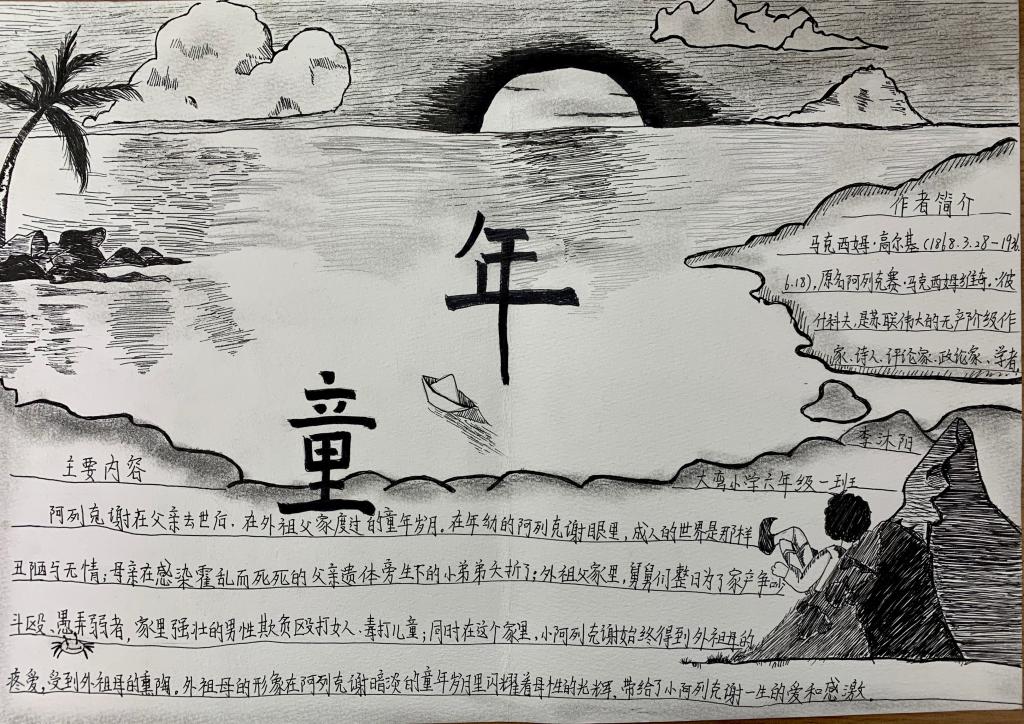 童年
作者简介
马克西姆·高尔基(1868.3.28-1936.
6.18),原名阿列克赛·马克西姆维奇·彼
什科夫,是苏联伟大的无产阶级作
家、诗人、评论家、政论家、学者,
李沐阳
大湾小学六年级一班
主要内容
阿列克谢在父亲去世后,在外祖父家度过的童年岁月。在年幼的阿列克谢眼里,成人的世界是那样
丑陋与无情;母亲在感染霍乱而死死的父亲遗体旁生下的小弟弟夭折了;外祖父家里,舅舅们整日为了家产争吵
斗殴、愚弄弱者,家里强壮的男性欺负殴打女人、毒打儿童;同时在这个家里,小阿列克谢始终得到外祖母的
疼爱,受到外祖母的熏陶。外祖母的形象在阿列克谢暗淡的童年岁月里闪耀着母性的光辉,带给了小阿列克谢一生的爱和感激。